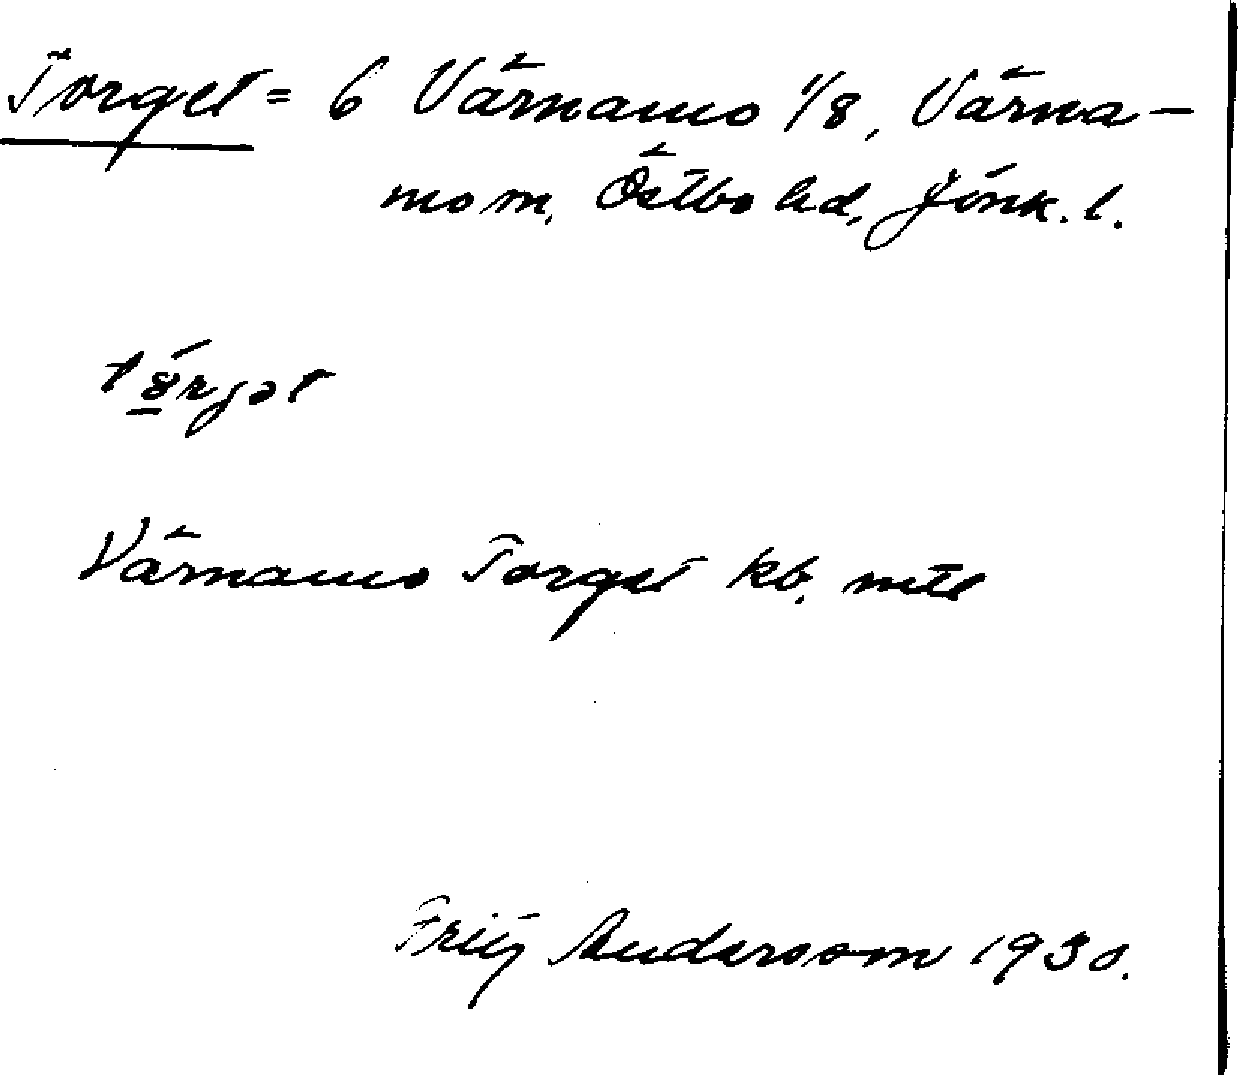 Torget = 6 Värnamo 1/8, Värna-
mo sn, Östbo hd, Jönk. l.
Värnamo Torget kb. mtl
Fritz Andersson 1930.